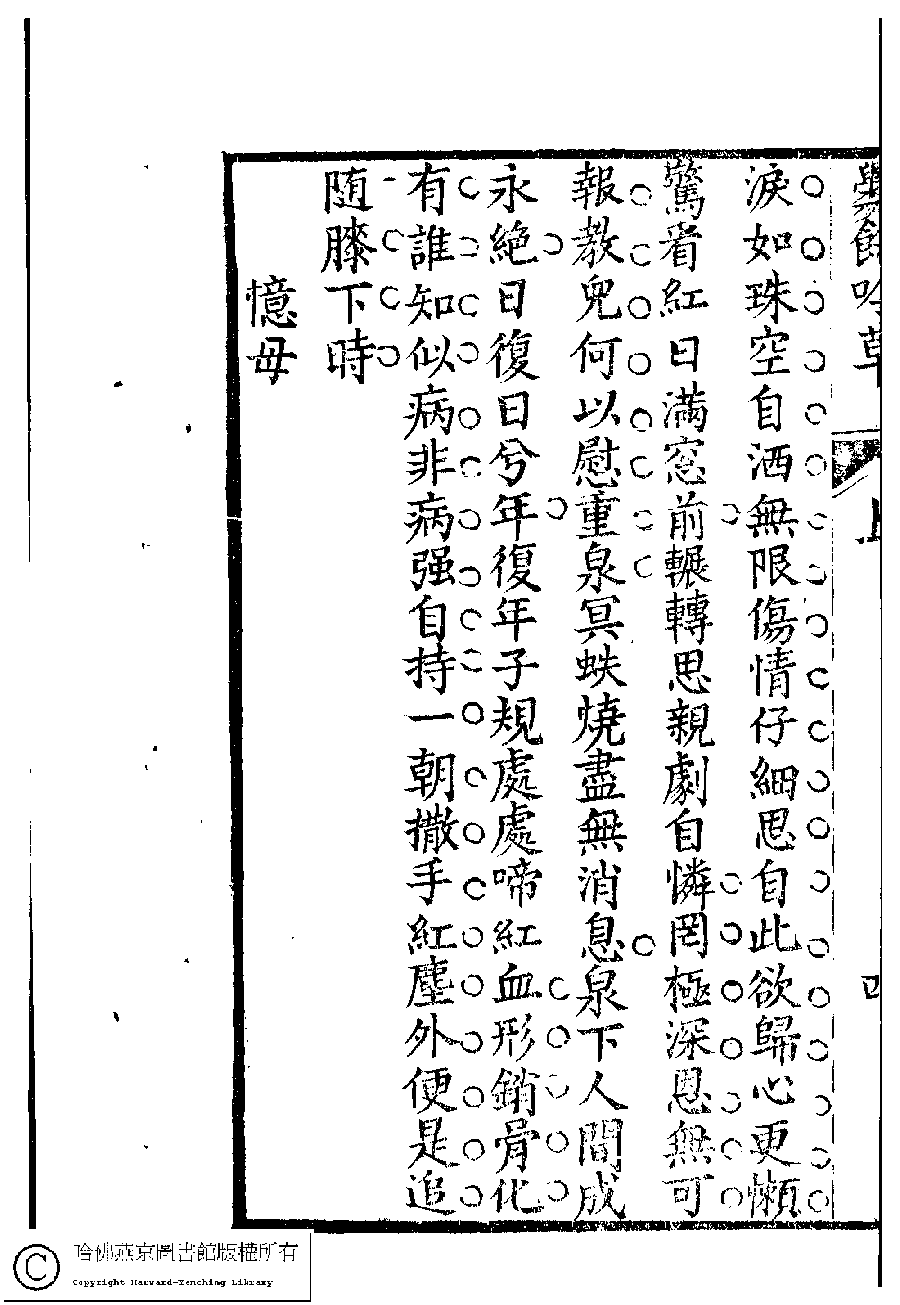 爨餘吟草
上
四
淚如珠空自洒無限傷情仔細思自此欲歸心更懶
驚看紅日滿窓前輾轉思親劇自憐罔極深恩無可
報教兒何以慰重泉冥蚨燒盡無消息泉下人間成
永絕日復日兮年復年子規處處啼紅血形銷骨化
有誰知似病非病强自持一朝撒手紅塵外便是追
随膝下時
憶母
哈佛燕京圖書館版權所有
Copyright Harvard-Yenching Library